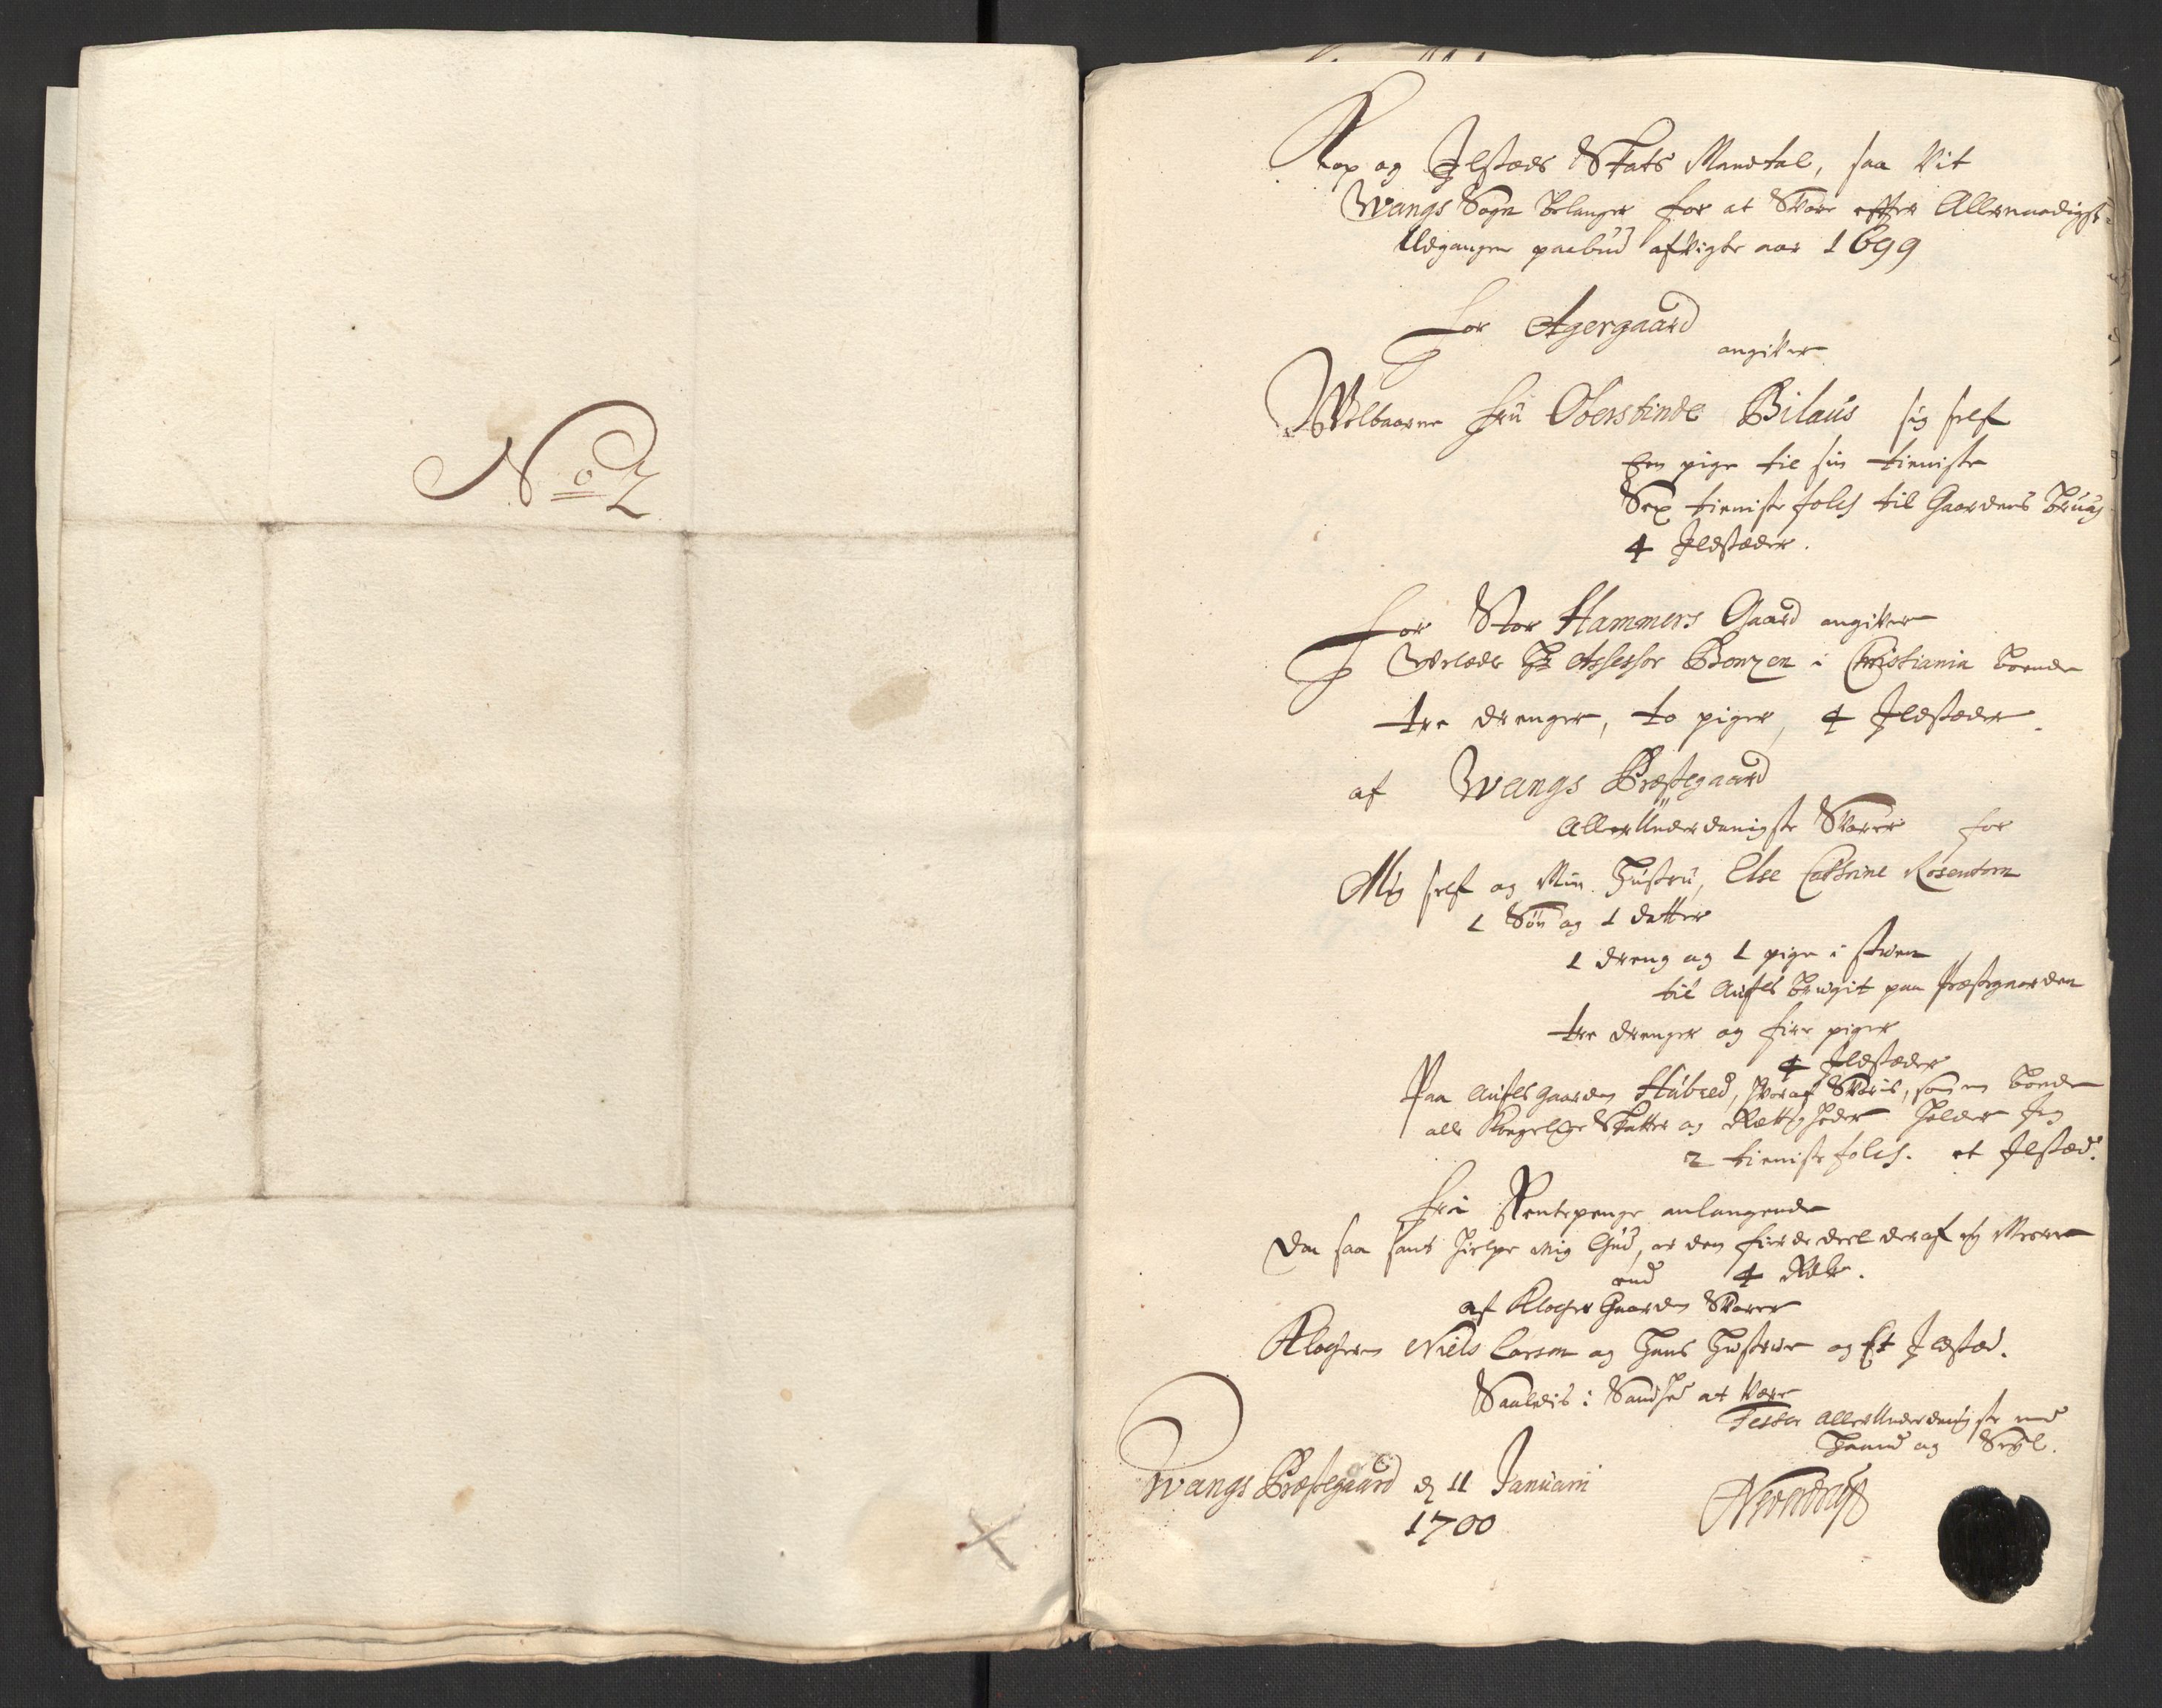 No 2
Kop og Ilsteds Skats Mandtal, saa vit
Wangs Sogn belanger for at Svare effter Allernaadigst
Udgangne paabud afvigte aar 1699
For Agergaard
angiver
Welbaarne Fru Oberstinde Bilaus sig self
Een pige til sin tieniste
Sex tieniste folch til Gaardens brug
4 Ildstæder.
For Stor Hammers Gaard angiver
Hr Assessor i Christiania boende
tre drenger, to piger, 4 Ildstæder.
af Wangs Præstegaard
AllerUnderdanigste Svarer for
Mig self og Min Hustru, Else Cathrine Rosentorn
1 Søn og 1 datter
1 dreng og 1 pige i stuen
til Aufls brugit paa Præstegaarden
tre drenger og fire piger
4 Ildstæder
Paa Aufls gaarden Hubred, hvoraf Svaris, som en bonde
alle Kongelige Skatter og Rettigheder holder Jeg
2 tieniste folch. et Ilsted.
Fri Rentepenge anlangende
Da saa sant hielpe mig Gud, er den fierde deel deraf ej Meere
end 4 Rdlr.
af Klocher Gaarden Svarer
Klocheren Niels Larsen og Hans Hustrue og Et Ildsted.
Saaledis i Sandhed at være
Tester AllerUnderdanigste med
Haand og Seyl.
Wangs Præstegaard d 11 Januarii
1700